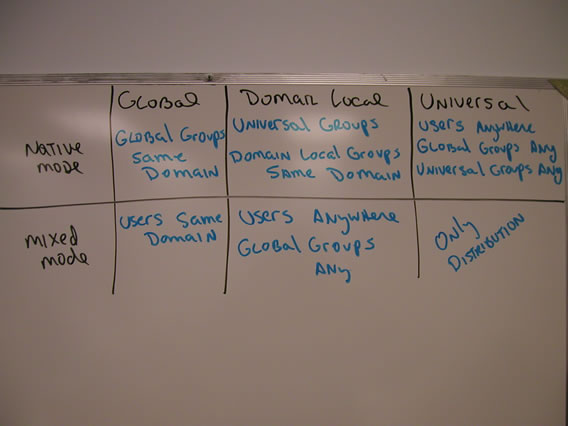 Global Domain Local Universal
Native mode
Global Groups Same Domain
Universal Groups
Domain Local Groups Same Domain
Users Anywhere
Global Groups Any
Universal Groups Any
Mixed mode
Users Same Domain
Users Anywhere
Global Groups Any
Only Distribution